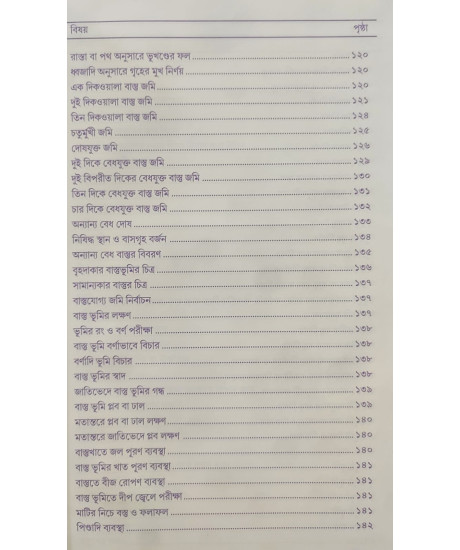 বিষয় পৃষ্ঠা
রাস্তা বা পথ অনুসারে ভূখণ্ডের ফল ১২০
ধ্বজাদি অনুসারে গৃহের মুখ নির্ণয় ১২০
এক দিকওয়ালা বাস্তু জমি ১২০
দুই দিকওয়ালা বাস্তু জমি ১২১
তিন দিকওয়ালা বাস্তু জমি ১২৪
চতুর্মুখী জমি ১২৫
দোষযুক্ত জমি ১২৬
দুই দিকে বেধযুক্ত বাস্তু জমি ১২৯
দুই বিপরীত দিকের বেধযুক্ত বাস্তু জমি ১৩০
তিন দিকে বেধযুক্ত বাস্তু জমি ১৩১
চার দিকে বেধযুক্ত বাস্তু জমি ১৩২
অন্যান্য বেধ দোষ ১৩৩
নিষিদ্ধ স্থান ও বাসগৃহ বর্জন ১৩৪
অন্যান্য বেধ বাস্তুর বিবরণ ১৩৫
বৃহদাকার বাস্তুভূমির চিত্র ১৩৬
সামান্যকার বাস্তুর চিত্র ১৩৭
বাস্তুযোগ্য জমি নির্বাচন ১৩৭
বাস্তু ভূমির লক্ষণ ১৩৭
ভূমির রং ও বর্ণ পরীক্ষা ১৩৮
বাস্তু ভূমি বর্ণাভাবে বিচার ১৩৮
বর্ণাদি ভূমি বিচার ১৩৮
বাস্তু ভূমির স্বাদ ১৩৮
জাতিভেদে বাস্তু ভূমির গন্ধ ১৩৯
বাস্তু ভূমি প্লব বা ঢাল ১৩৯
মতান্তরে প্লব বা ঢাল লক্ষণ ১৪০
মতান্তরে জাতিভেদে প্লব লক্ষণ ১৪০
বাস্তুখাতে জল পূরণ ব্যবস্থা ১৪০
বাস্তু ভূমির খাত পূরণ ব্যবস্থা ১৪১
বাস্তুতে বীজ রোপণ ব্যবস্থা ১৪১
বাস্তু ভূমিতে দীপ জ্বেলে পরীক্ষা ১৪১
মাটির নিচে বস্তু ও ফলাফল ১৪১
পিণ্ডাদি ব্যবস্থা ১৪২